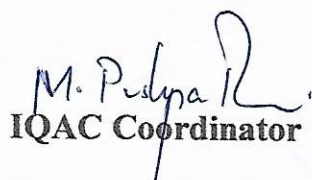 M. Pushpa R
IQAC Coordinator